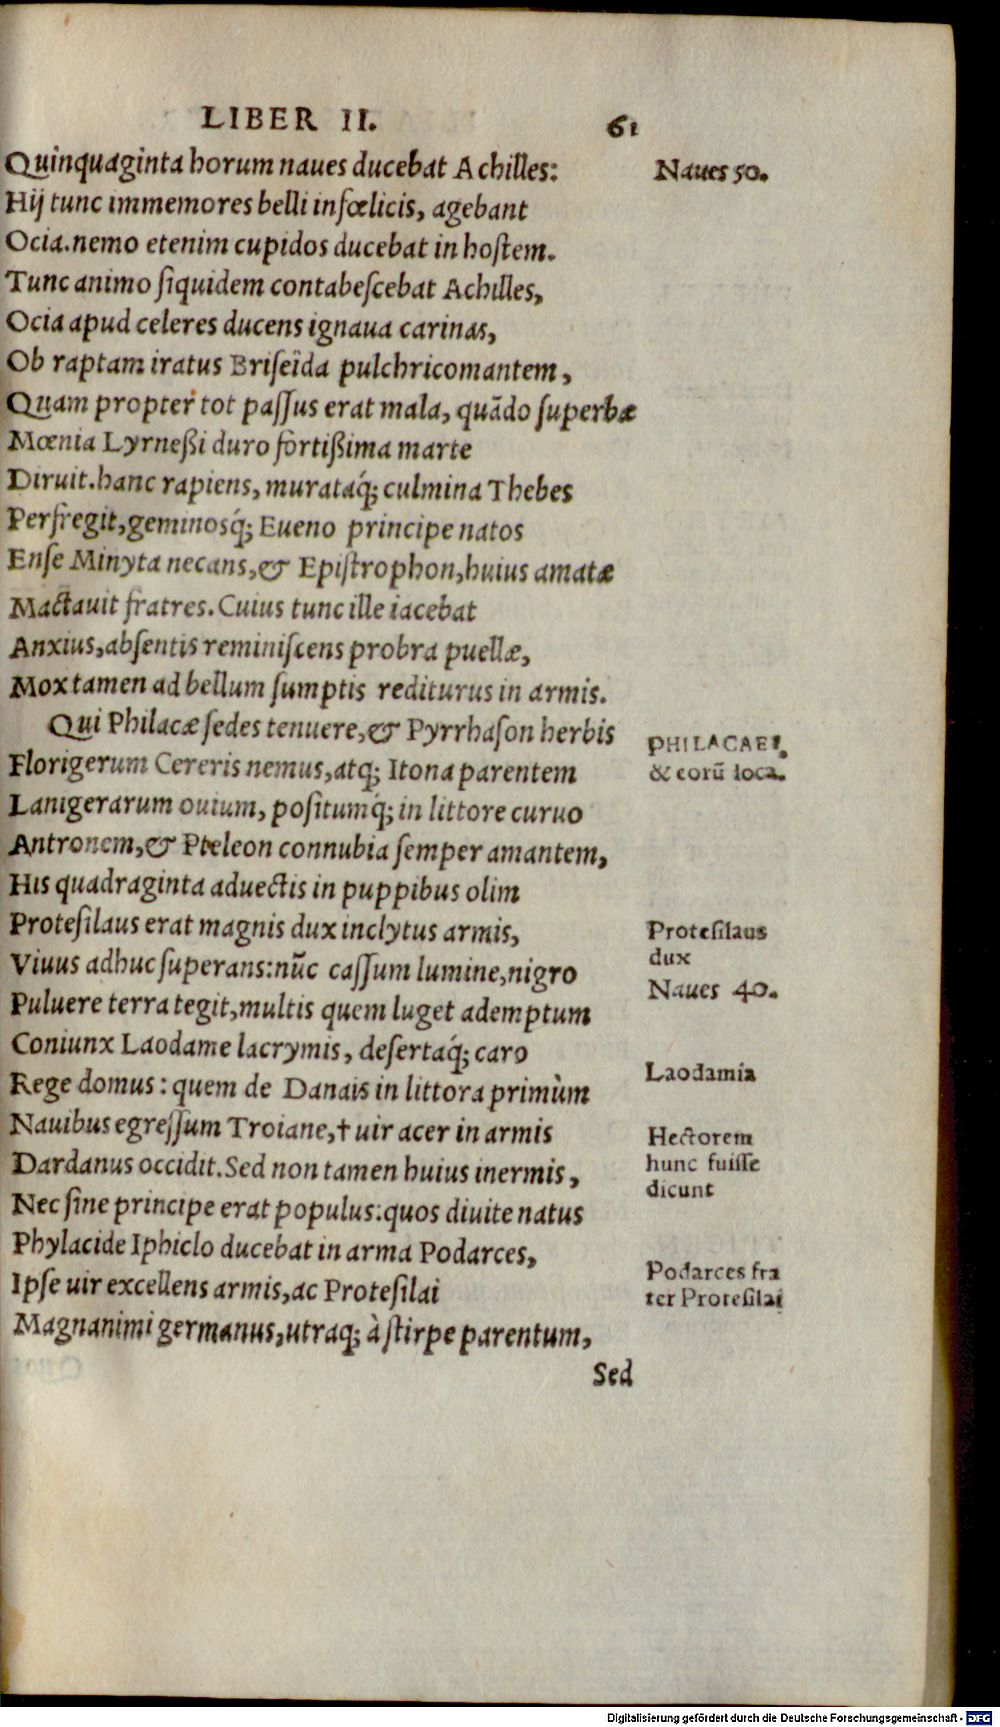 LIBER II. 61
Quinquaginta horum naues ducebat Achilles:
Naues 50.
Hij tunc immemores belli infœlicis, agebant
Ocia. nemo etenim cupidos ducebat in hoſtem.
Tunc animo ſiquidem contabeſcebat Achilles,
Ocia apud celeres ducens ignaua carinas,
Ob raptam iratus Briſeïda pulchricomantem,
Quam propter tot paſſus erat mala, quādo ſuperbæ
Mœnia Lyrneßi duro fortißima marte
Diruit. hanc rapiens, murataq́; culmina Thebes
Perfregit, geminosq́; Eueno principe natos
Enſe Minyta necans, & Epiſtrophon, huius amatæ
Mactauit fratres. Cuius tunc ille iacebat
Anxius, abſentis reminiſcens probra puellæ,
Mox tamen ad bellum ſumptis rediturus in armis.
Qui Philacæ ſedes tenuere, & Pyrrhaſon herbis
PHILACAEI,
Florigerum Cereris nemus, atq; Itona parentem
& eorū loca.
Lanigerarum ouium, poſitumq́; in littore curuo
Antronem, & Pteleon connubia ſemper amantem,
His quadraginta aduectis in puppibus olim
Proteſilaus erat magnis dux inclytus armis,
Proteſilaus
dux
Viuus adhuc ſuperans: nūc caſſum lumine, nigro
Naues 40.
Puluere terra tegit, multis quem luget ademptum
Coniunx Laodame lacrymis, deſertaq́; caro
Laodamía
Rege domus: quem de Danais in littora primùm
Nauibus egreſſum Troiane, † uir acer in armis
Hectorem
hunc fuiſſe
dicunt
Dardanus occidit. Sed non tamen huius inermis,
Nec ſine principe erat populus: quos diuite natus
Phylacide Iphiclo ducebat in arma Podarces,
Podarces fra
ter Proteſilai
Ipſe uir excellens armis, ac Proteſilai
Magnanimi germanus, utraq; à ſtirpe parentum,
Sed
Digitalisierung gefördert durch die Deutsche Forschungsgemeinschaft - DFG